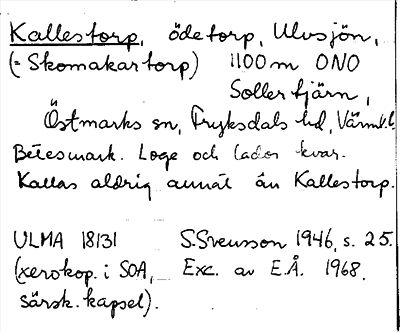 Kallestorp, ödetorp, Ulvsjön,
(= Skomakartorp) 1100 m ONO
Sollertjärn,
Östmarks sn, Fryksdals hd, Värml. l.
Betesmark. Loge och lador kvar.
Kallas aldrig annat än Kallestorp.
ULMA 18131 S. Svensson 1946, s. 25.
(xerokop. i SOA, Exc. av E.Å. 1968.
särsk. kapsel).